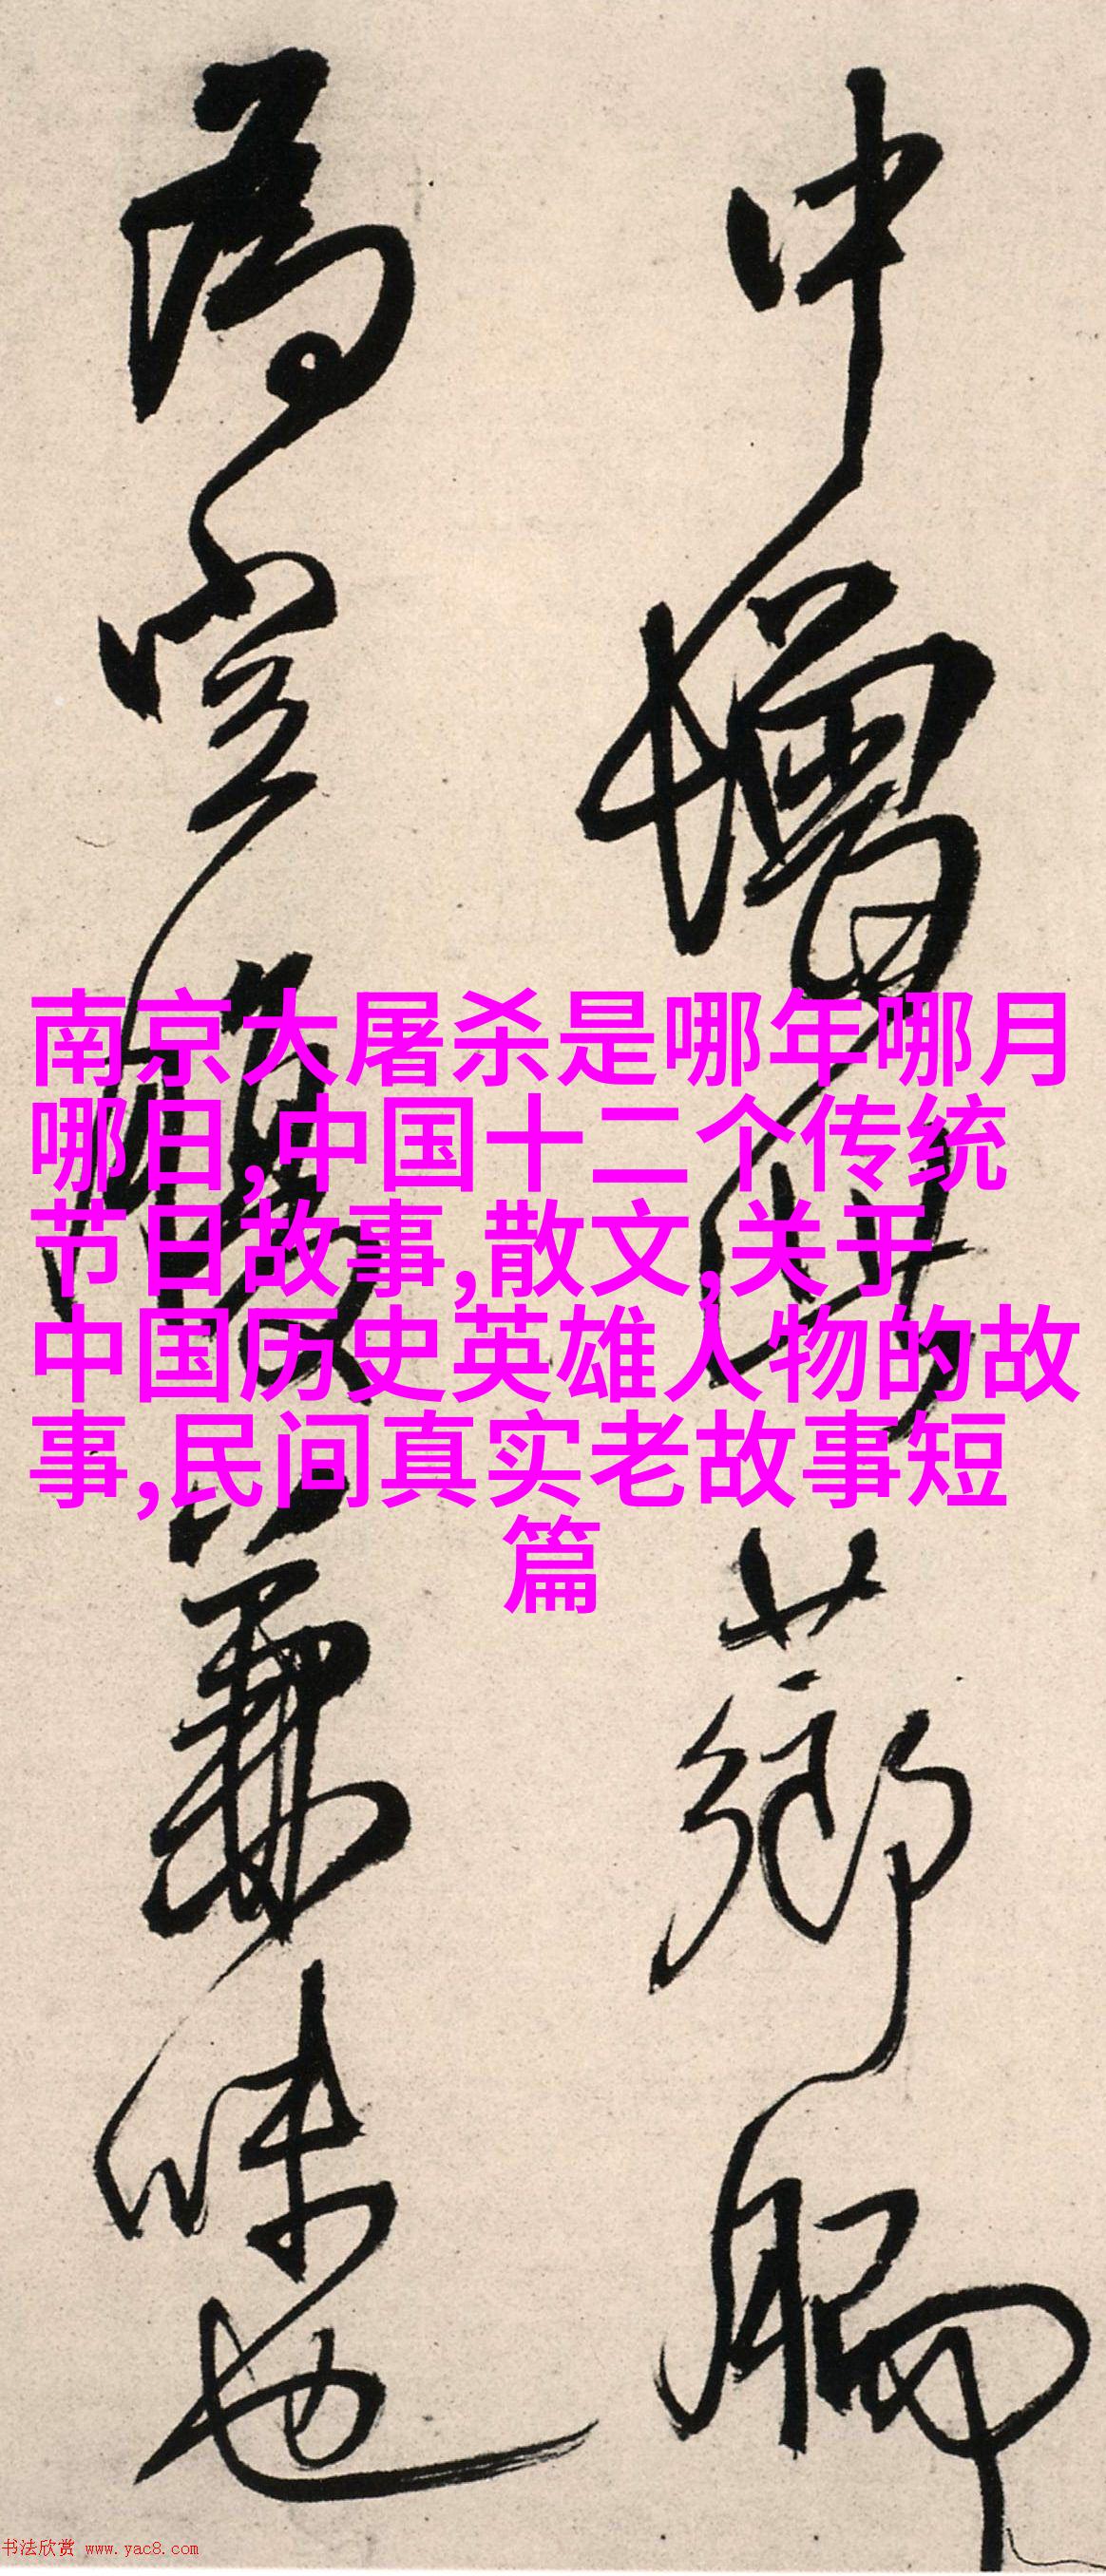 中增薌
為兼味也
南京大屠杀是哪年哪月
哪日,中国十二个传统
节日故事,散文,关于
中国历史英雄人物的故
事,民间真实老故事短
篇
书法欣赏 www.yac8.com